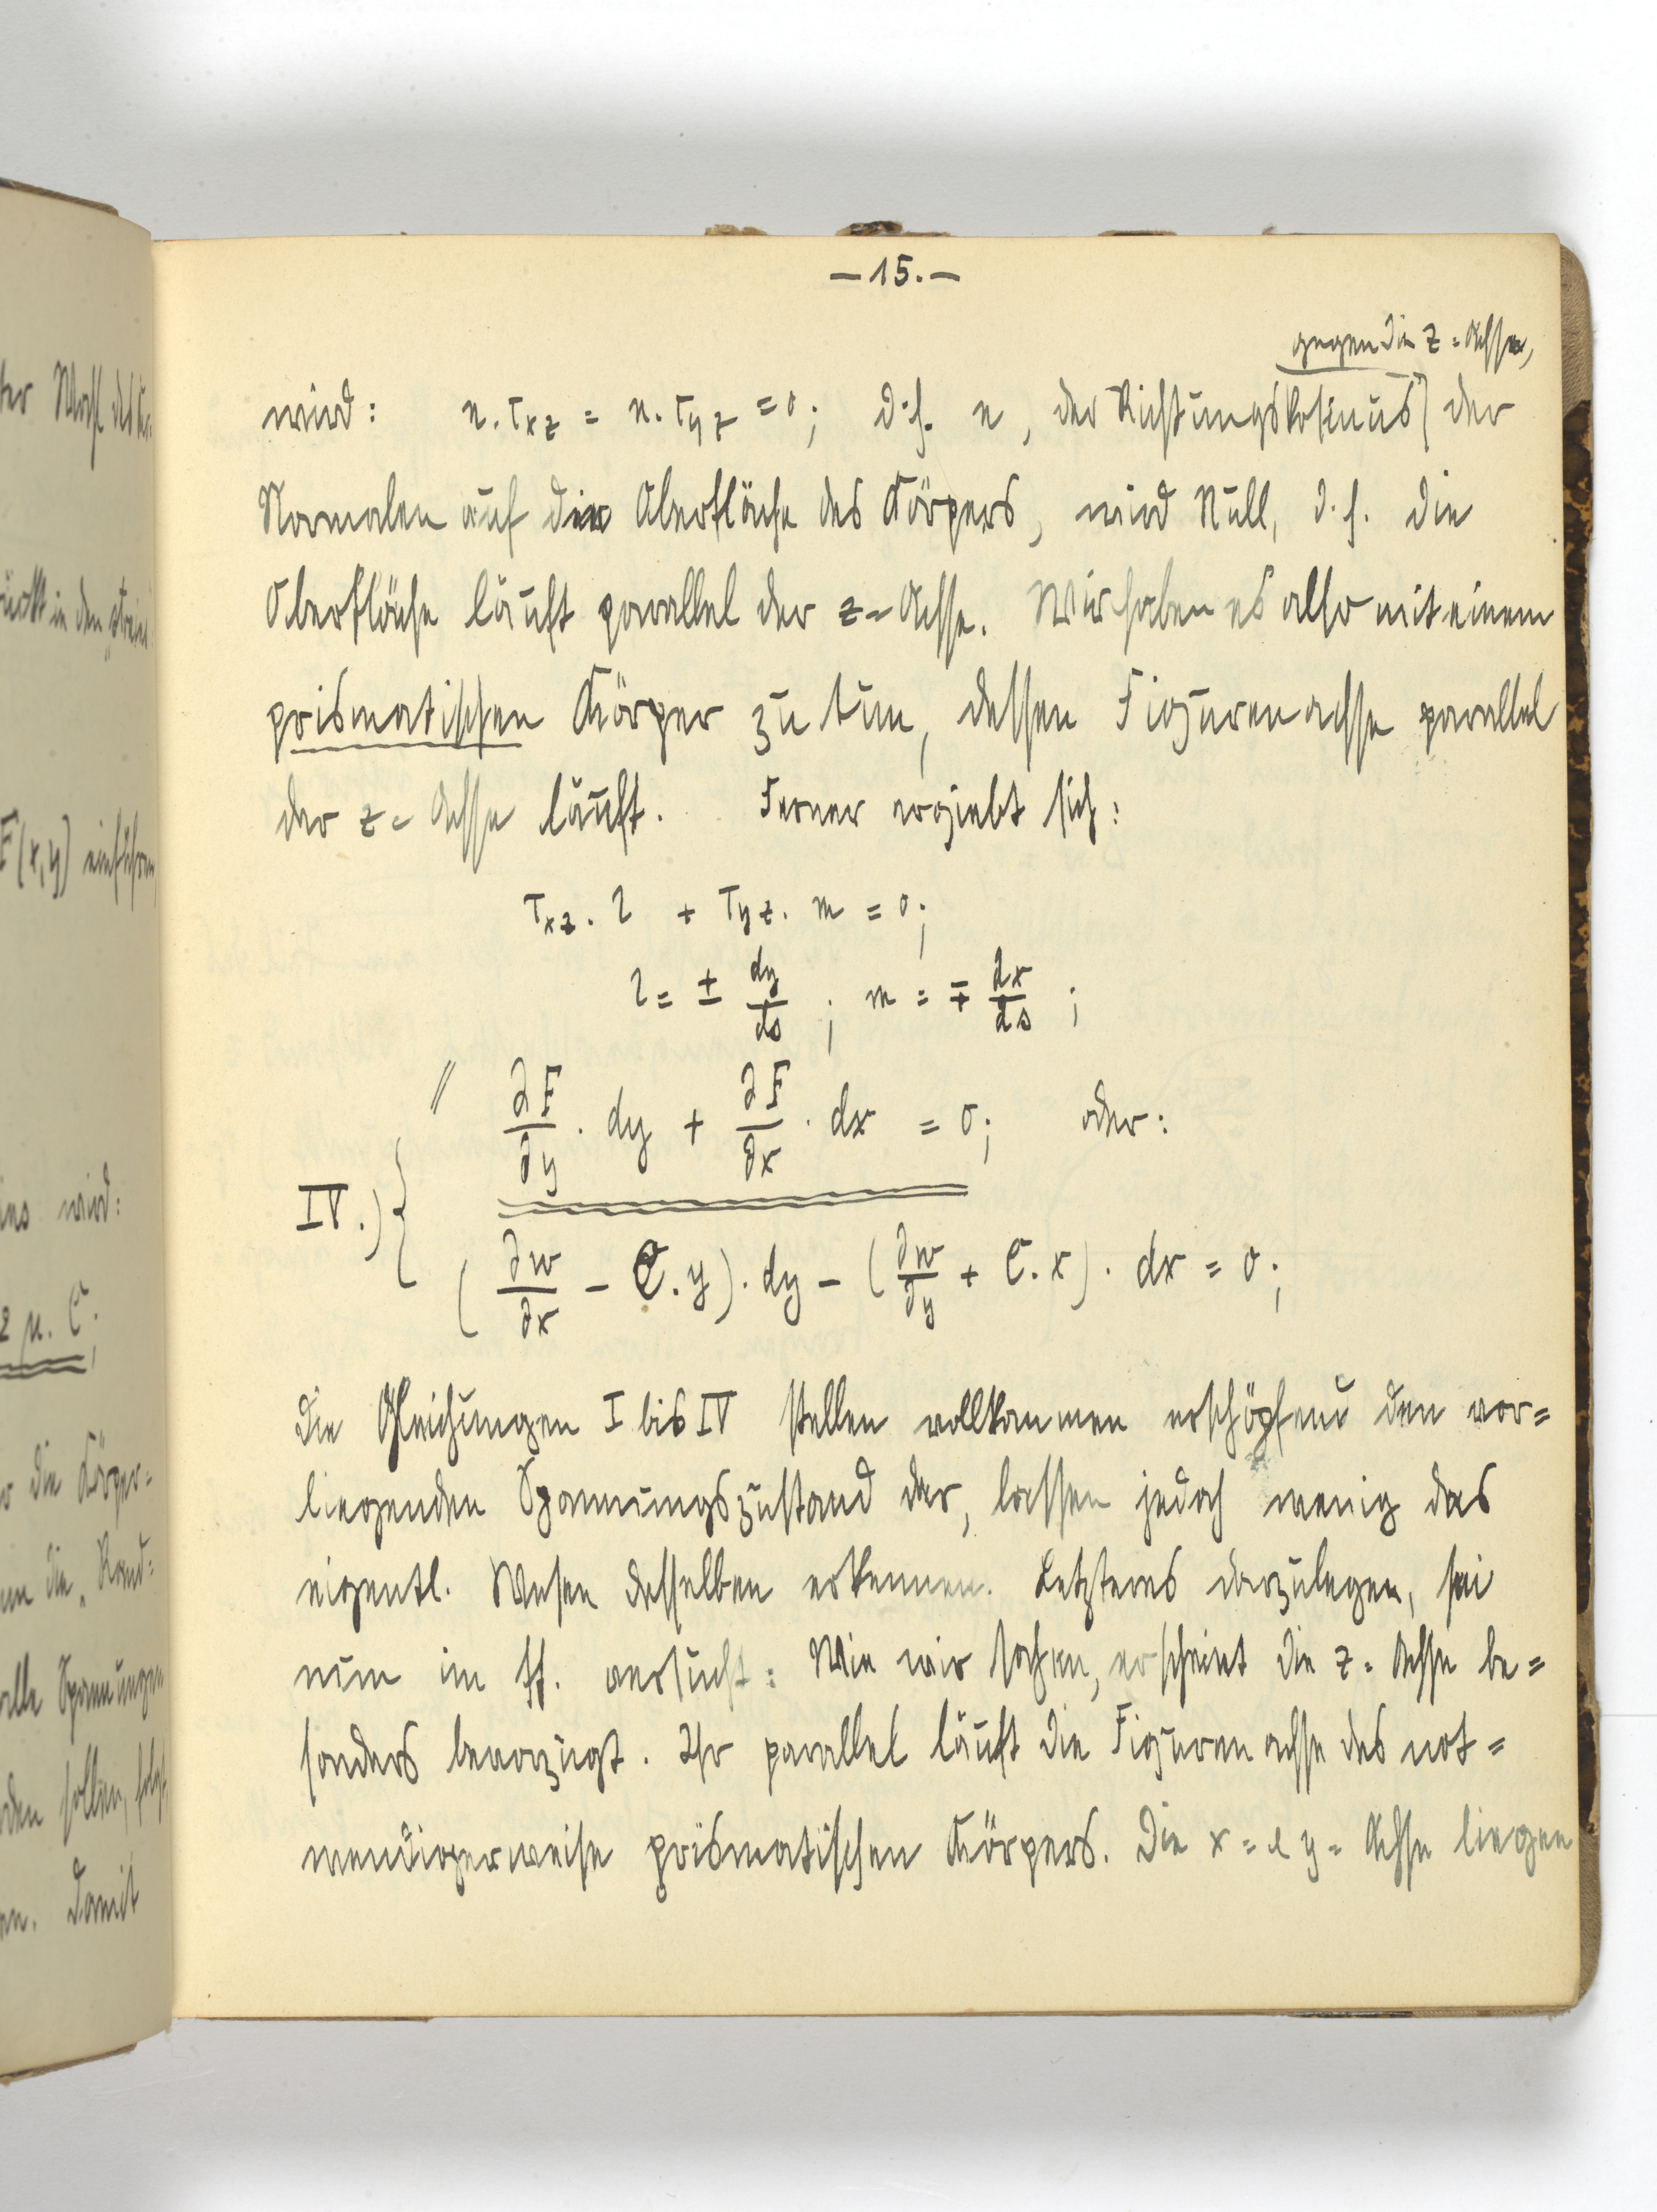 — 15. —
gegen die z = Achse,
wird: n . τxz = n . τyz = 0; d. h. n, der Richtungskosinus der
Normalen auf die Oberfläche des Körpers, wird Null, d. h. die
Oberfläche läuft parallel der z = Achse. Wir haben es also mit einem
prismatischen Körper zu tun, dessen Figurenachse parallel
der z = Achse läuft. Ferner ergiebt sich:
τxz . l + τyz . m = 0;
l = ± dy/ds ; m = ∓ dx/ds ;
// ∂F/∂y . dy + ∂F/∂x . dx = 0; oder:
IV.) {
(∂w/∂x − C . y) . dy − (∂w/∂y + C . x) . dx = 0;
Die Gleichungen I bis IV stellen vollkommen erschöpfend den vor=
liegenden Spannungszustand dar, lassen jedoch wenig das
eigentl. Wesen desselben erkennen. Letzteres darzulegen, sei
nun im ff. versucht: Wie wir sahen, erscheint die z = Achse be=
sonders bevorzugt. Ihr parallel läuft die Figurenachse des not=
wendigerweise prismatischen Körpers. Die x = & y = Achse liegen
F(x,y) einführen
wird:
2 μ . C;
die Körper=
die „Rand=
alle Spannungen
sollen, folgt
Damit